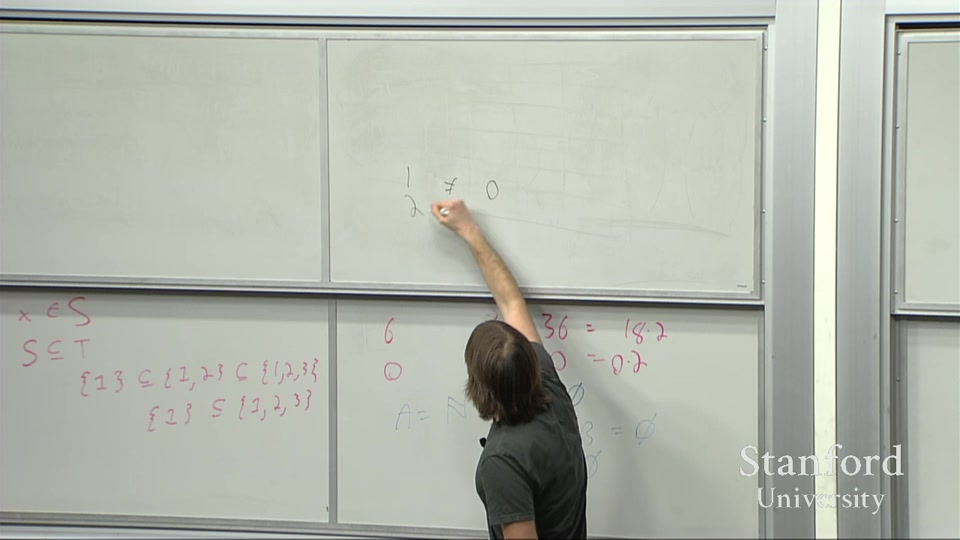 1 ≠ 0
2
x ∈ S
S ⊆ T
{1} ⊆ {1,2} ⊆ {1,2,3}
{1} ⊆ {1,2,3}
6 36 = 18·2
0 0 = 0·2
A = ℕ ∅
3 = ∅
∅
Stanford
University